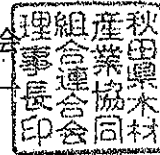 秋田縣木材
産業協同
組合連合会
理事長印
会